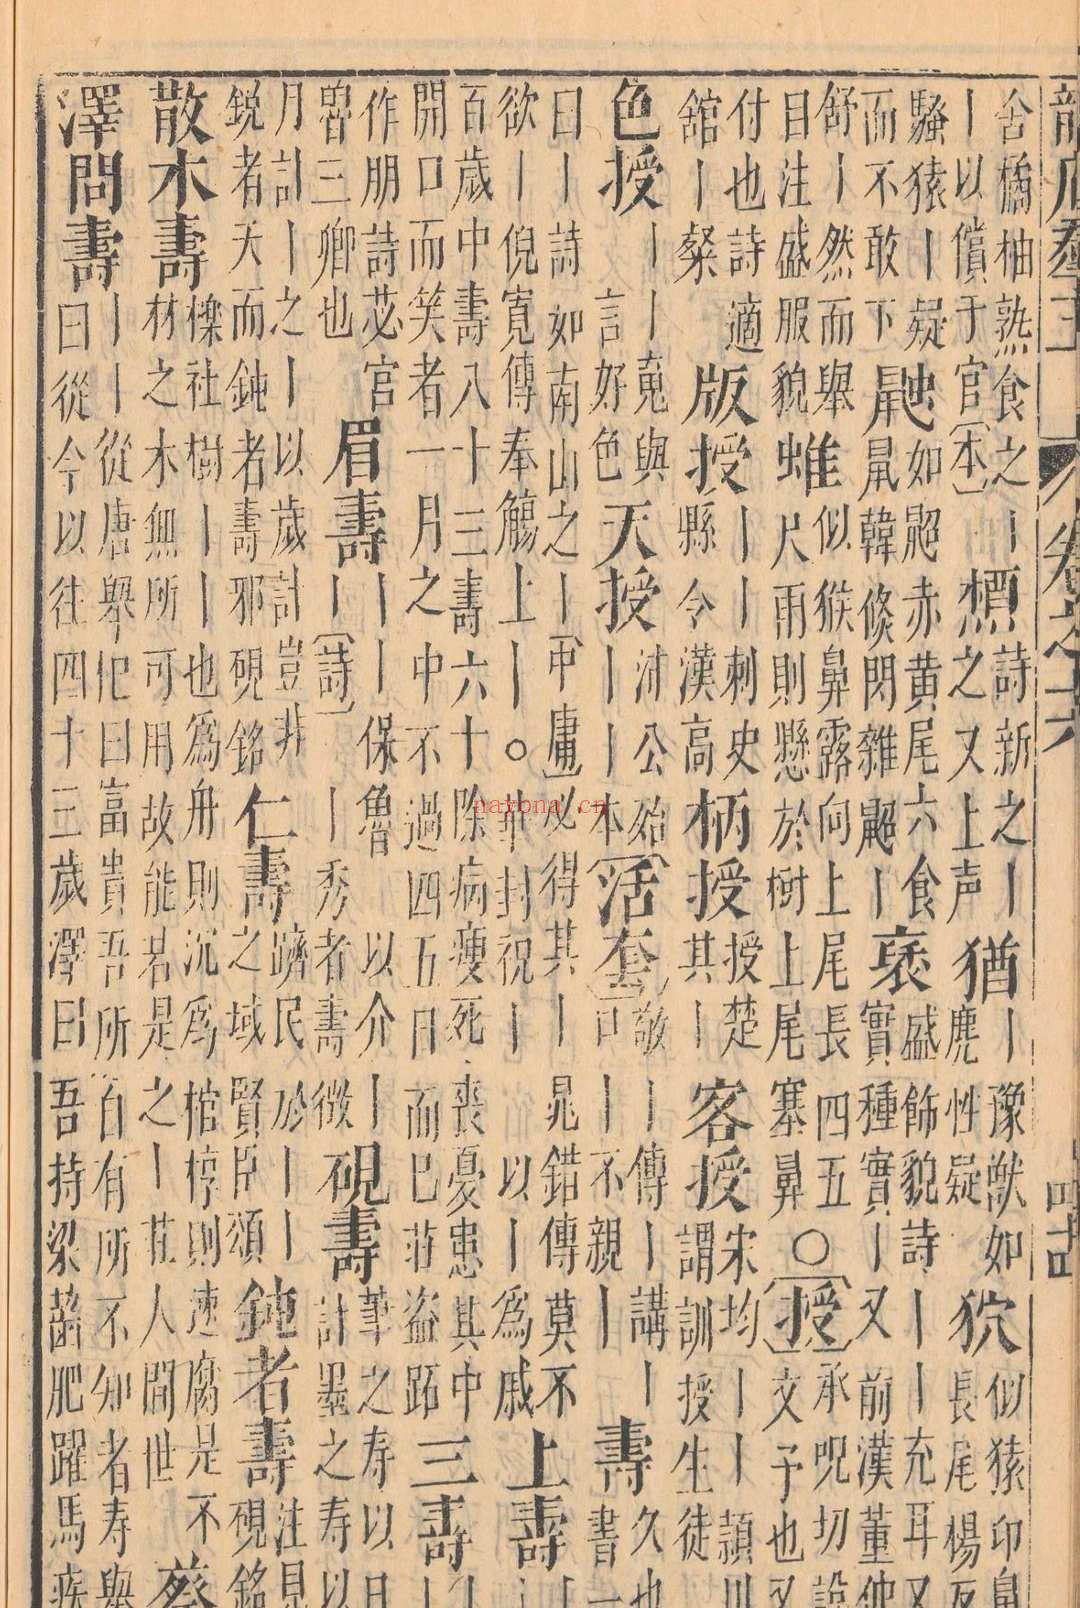 韻府羣玉 卷之十六
舍橘柚熟食之丨丨以償于官〔本〕 槱 詩新之丨之又上声 猶 丨豫獸如麂性疑 狖 似猿卬鼻長尾楊
騷猿丨疑而不敢下 鼬 如鼠赤黄尾六食鼠韓倏閃雜鼬丨 褎 盛飾貌詩丨丨充耳又實種實丨又前漢董仲
舒丨然而舉目注盛服貌 蜼 似猴鼻露向上尾長四五尺雨則懸於樹上尾塞鼻 ○〔授〕承呪切設文予也又
付也詩適舘丨粲 版授 丨丨刺史縣令漢高 柄授 授楚其丨 客授 宋均丨丨頴川謂訓授生徒
色授 丨丨䰟與言好色 天授 沛公殆丨丨本〔活套〕敬丨丨傳丨講丨口丨不親丨 壽 久也書一
曰丨詩如南山之丨〔中庸〕必得其丨晁錯傳莫不欲丨倪寬傳奉觴上丨○華封祝丨以丨為戚 上壽 丨
百歲中壽八十三壽六十除病瘦死喪憂患其中開口而笑者一月之中不過四五日而已莊盜跖 三壽 丨丨
作朋詩苾宮魯三卿也 眉壽 丨丨保魯以介丨丨〔詩〕丨秀者壽微 硯壽 筆之寿以日計墨之寿以
月計丨之丨以歲計豈非鋭者夭而鈍者壽邪硯銘 仁壽 躋民於丨丨之域賢臣頌 鈍者壽 注見硯銘
散木壽 櫟社樹丨丨也為舟則沉為棺椁則速腐是不材之木無所可用故能若是之丨莊人間世 蔡
澤問壽 丨丨從唐舉曰富貴吾所自有所不知者寿舉曰從今以往四十三歲澤曰吾持梁齧肥躍馬疾